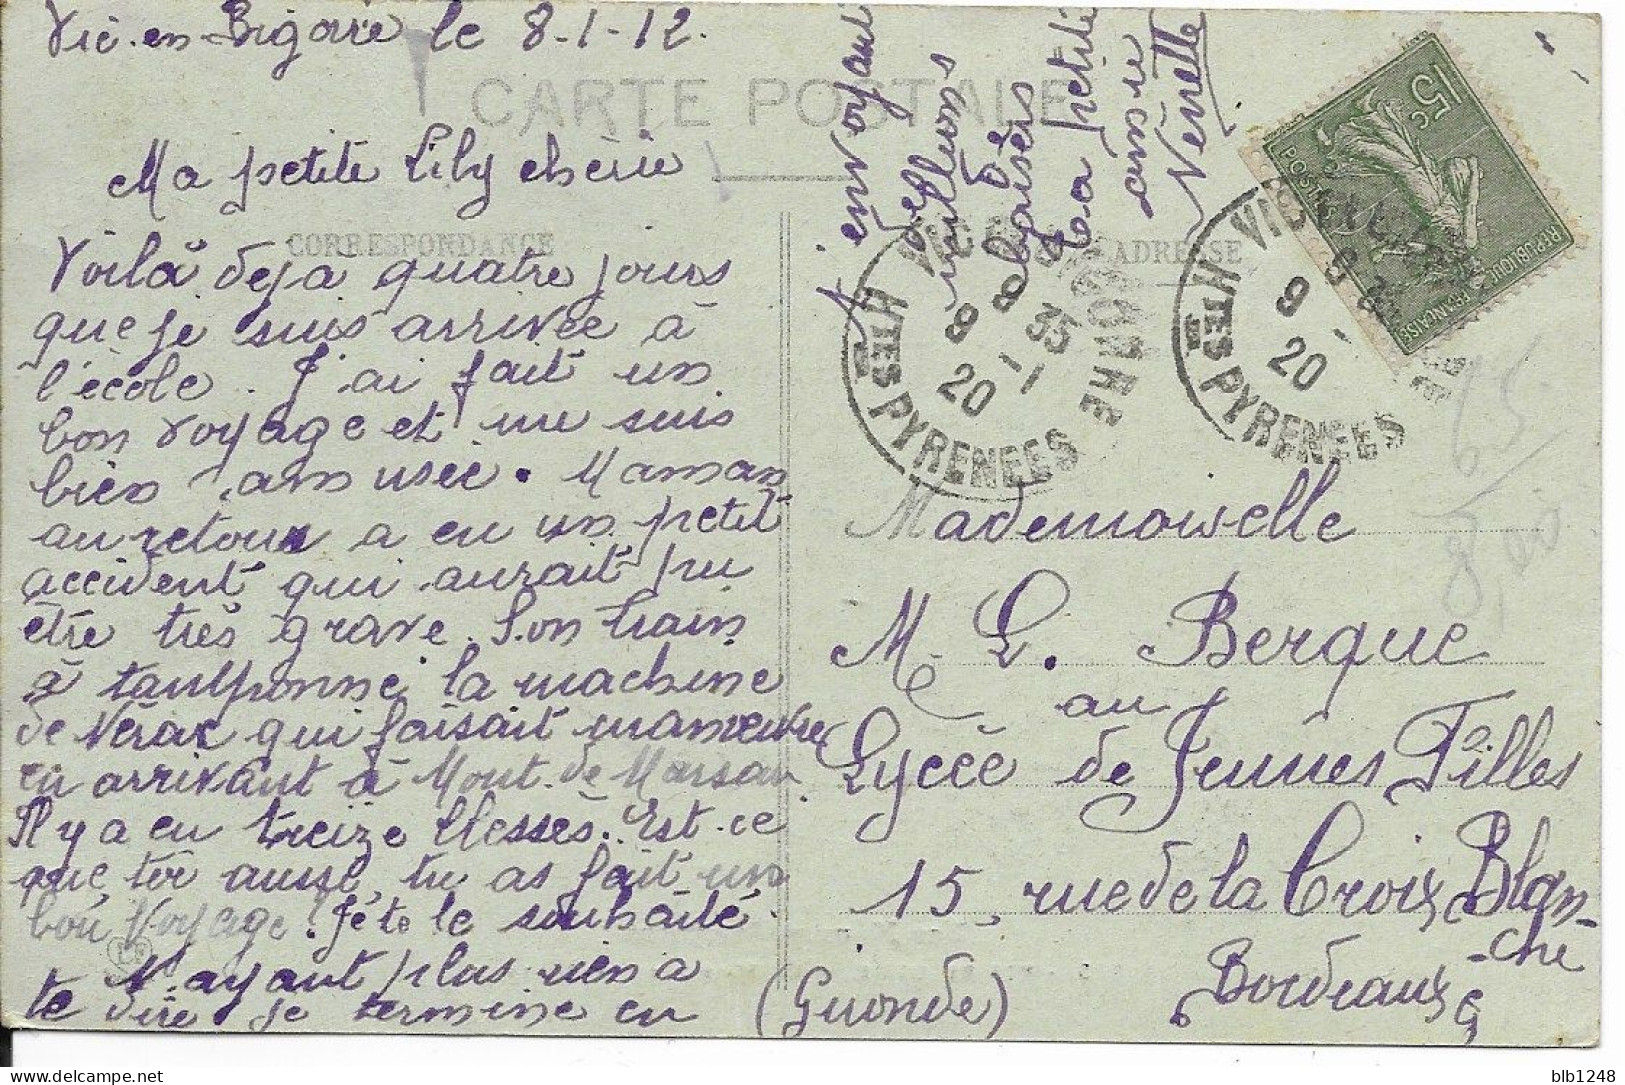 Vic-en-Bigorre le 8-1-12.
CARTE POSTALE
Ma petite Lily chérie
CORRESPONDANCE
Voilà déjà quatre jours
que je suis arrivée à
l'école. J'ai fait un
bon voyage et me suis
bien amusée. Maman
au retour a eu un petit
accident qui aurait pu
être très grave. Son train
à tamponné la machine
de Nérac qui faisait manœuvre
en arrivant à Mont-de-Marsan.
Il y a eu treize blessés. Est-ce
que toi aussi, tu as fait un
bon voyage? Je te le souhaite.
N'ayant plus rien a
te dire je termine en
t'envoyant
meilleurs
baisers
Ta petite
amie
Nénette
ADRESSE
VIC BIGORRE
Htes PYRENEES
8 35
9 -1
20
VIC
9 -
20
Htes PYRENEES
15c
POSTES
REPUBLIQUE FRANÇAISE
Mademoiselle
M. L. Berque
au
Lycée de Jeunes Filles
15, rue de la Croix Blan-
che
Bordeaux
(Gironde)
blb1248